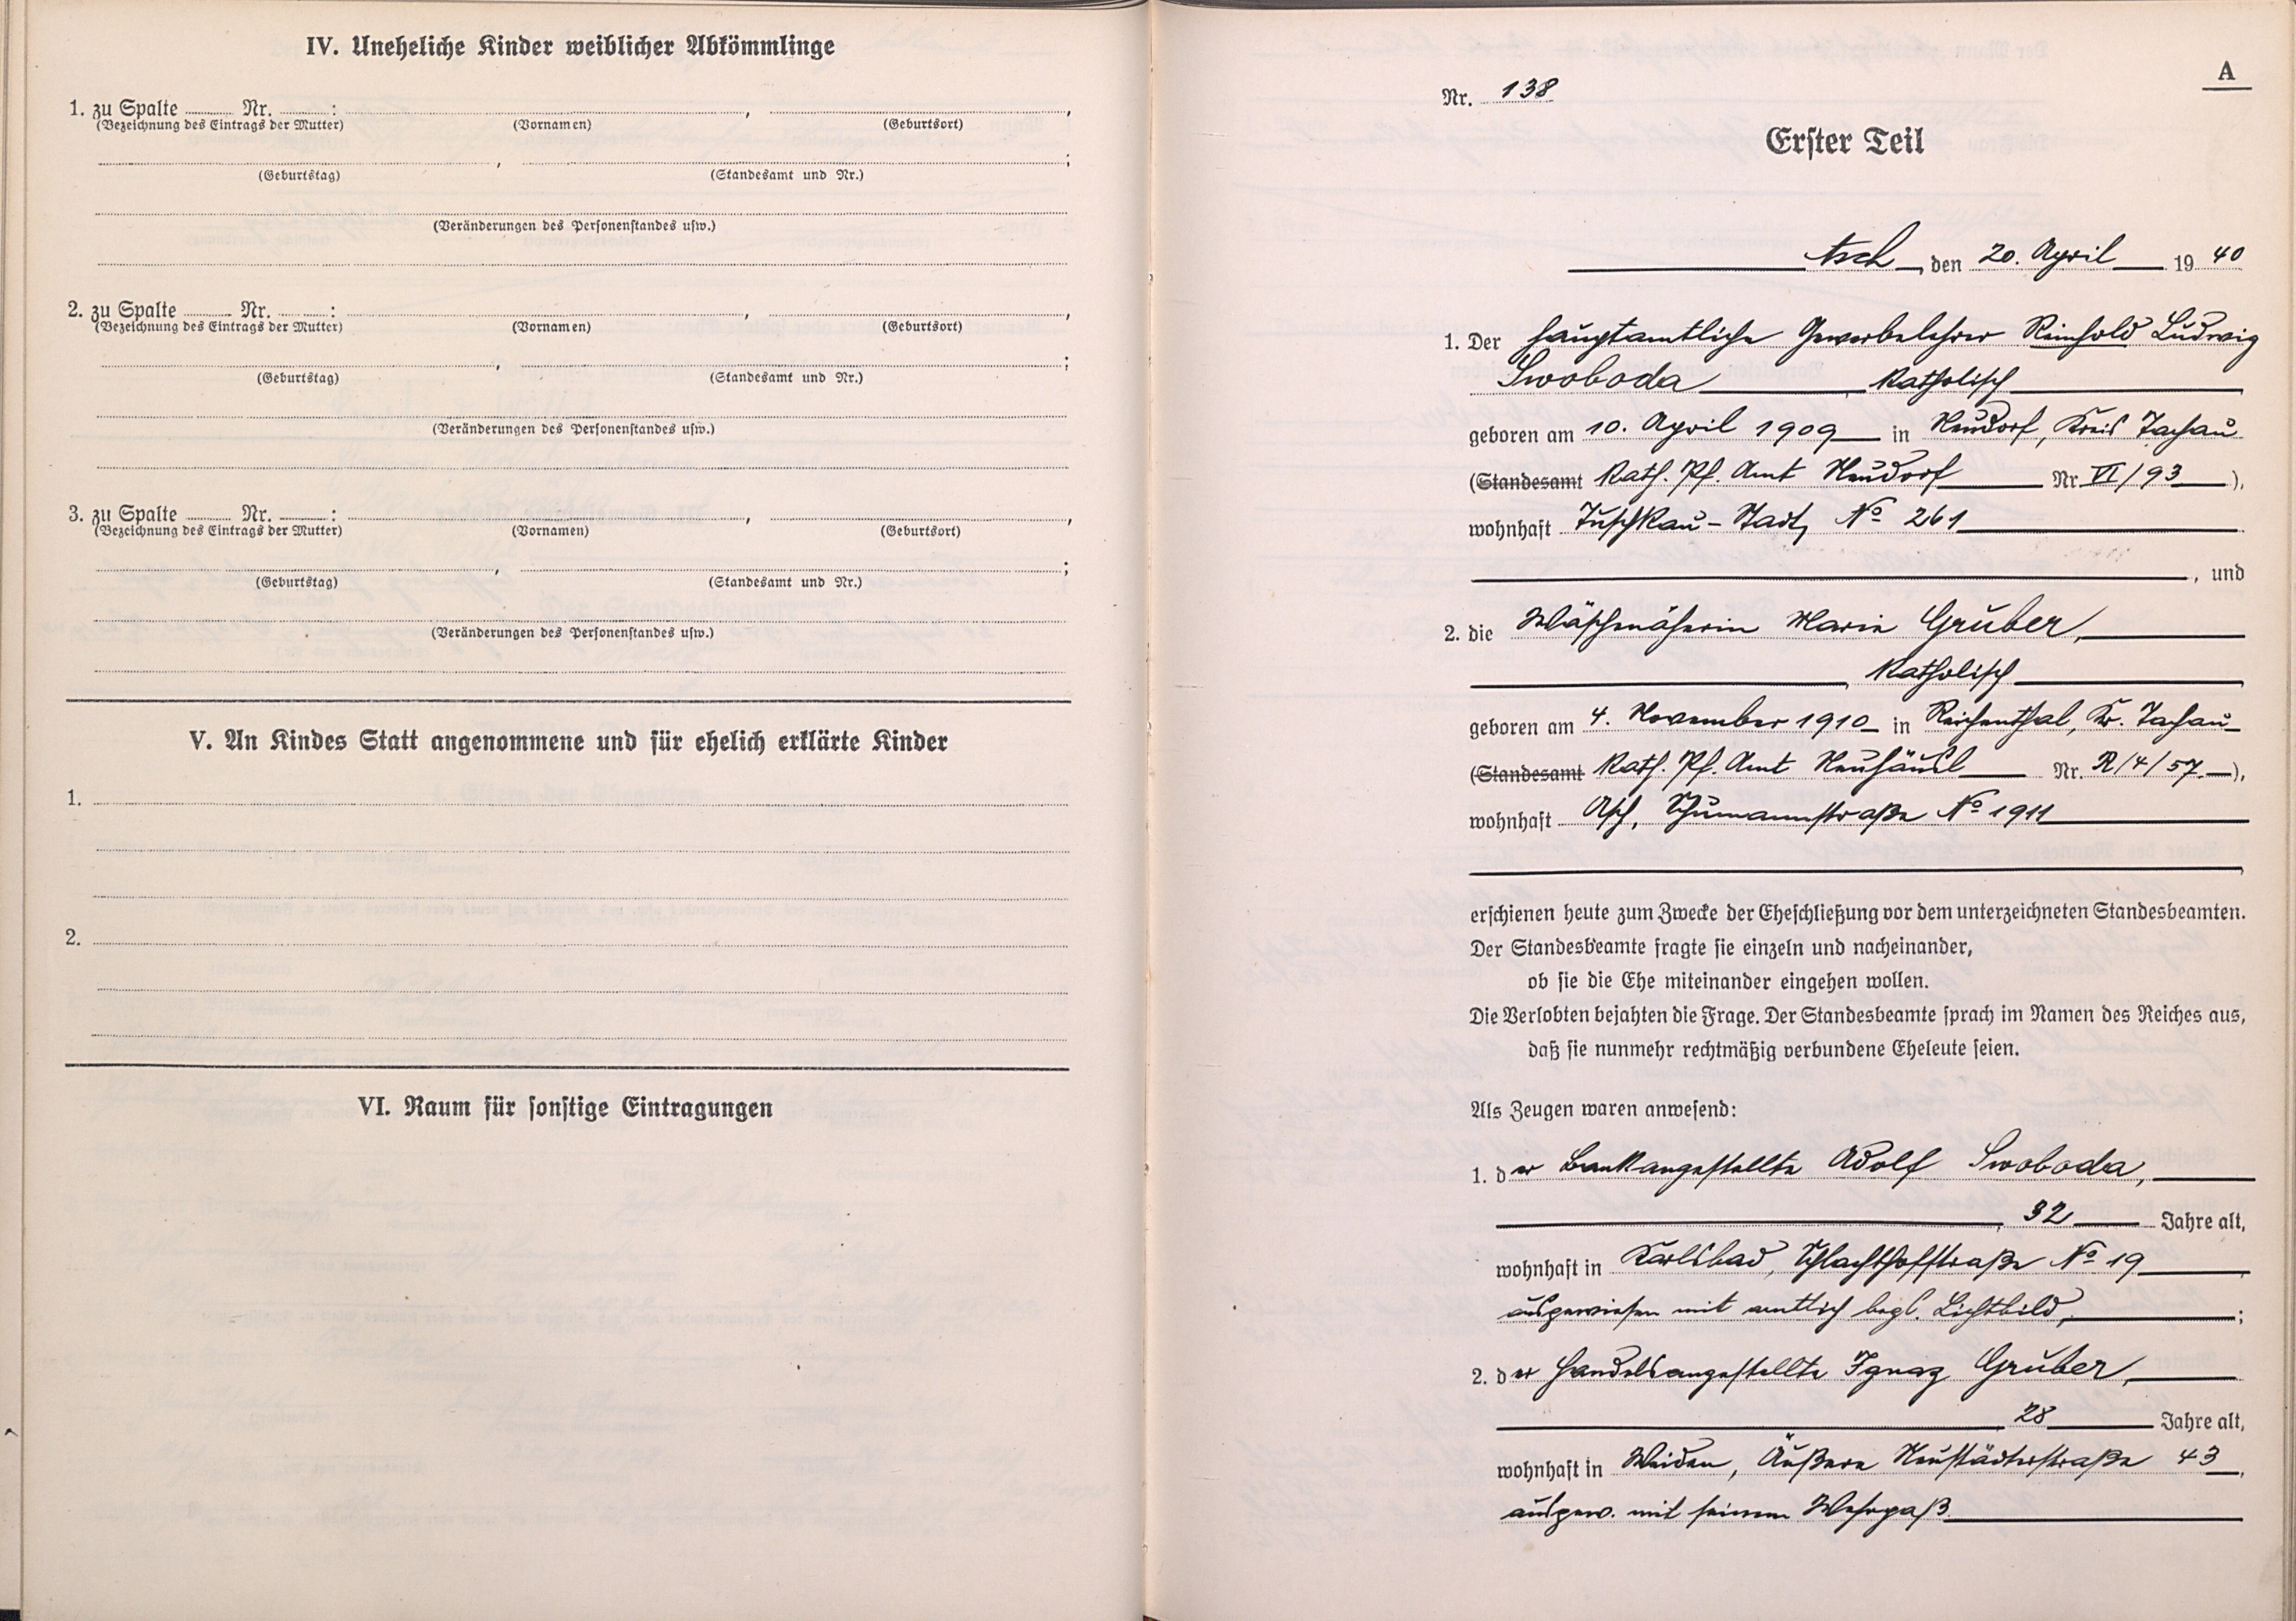 IV. Uneheliche Kinder weiblicher Abkömmlinge
1. zu Spalte Nr. : , ,
(Bezeichnung des Eintrags der Mutter) (Vornamen) (Geburtsort)
, ;
(Geburtstag) (Standesamt und Nr.)
(Veränderungen des Personenstandes usw.)
2. zu Spalte Nr. : , ,
(Bezeichnung des Eintrags der Mutter) (Vornamen) (Geburtsort)
, ;
(Geburtstag) (Standesamt und Nr.)
(Veränderungen des Personenstandes usw.)
3. zu Spalte Nr. : , ,
(Bezeichnung des Eintrags der Mutter) (Vornamen) (Geburtsort)
, ;
(Geburtstag) (Standesamt und Nr.)
(Veränderungen des Personenstandes usw.)
V. An Kindes Statt angenommene und für ehelich erklärte Kinder
1.
2.
VI. Raum für sonstige Eintragungen
A
Nr. 138
Erster Teil
Asch, den 20. April 1940
1. Der hauptamtliche Gewerbelehrer Reinhold Ludwig
Swoboda, katholisch
geboren am 10. April 1909 in Neudorf, Kreis Tachau
(Standesamt Kath. Pf. Amt Neudorf Nr. VI/93),
wohnhaft Tuschkau-Stadt, No 261
, und
2. die Wäschenäherin Marie Gruber,
, katholisch,
geboren am 4. November 1910 in Reichenthal, Kr. Tachau
(Standesamt Kath. Pf. Amt Neuhäusl Nr. R/4/57),
wohnhaft Asch, Schumannstraße No 1911
,
erschienen heute zum Zwecke der Eheschließung vor dem unterzeichneten Standesbeamten.
Der Standesbeamte fragte sie einzeln und nacheinander,
ob sie die Ehe miteinander eingehen wollen.
Die Verlobten bejahten die Frage. Der Standesbeamte sprach im Namen des Reiches aus,
daß sie nunmehr rechtmäßig verbundene Eheleute seien.
Als Zeugen waren anwesend:
1. der Bankangestellte Adolf Swoboda,
, 32 Jahre alt,
wohnhaft in Karlsbad, Schlachthofstraße No 19,
ausgewiesen mit amtlich begl. Lichtbild, ;
2. der Handelsangestellte Ignaz Gruber,
, 28 Jahre alt,
wohnhaft in Weiden, Äußere Neustädterstraße 43,
ausgew. mit seinem Wehrpaß.